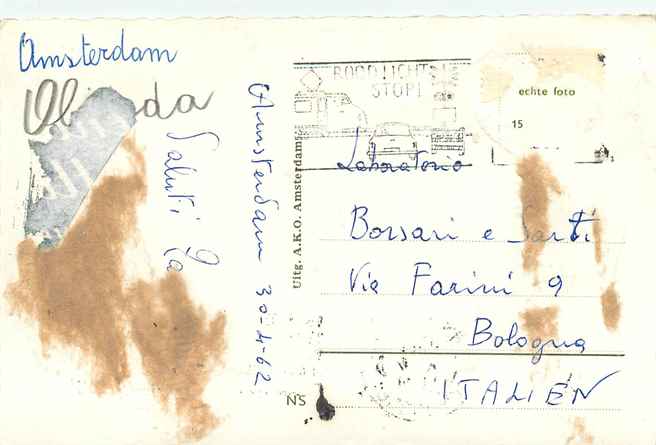 Amsterdam
Olanda
Saluti
Amsterdam 30-4-62
Uitg. A.K.O. Amsterdam
ROOD LICHT
STOP!
echte foto
15
Laboratorio
Borsari e Sarti
Via Farini 9
Bologna
ITALIEN
NS